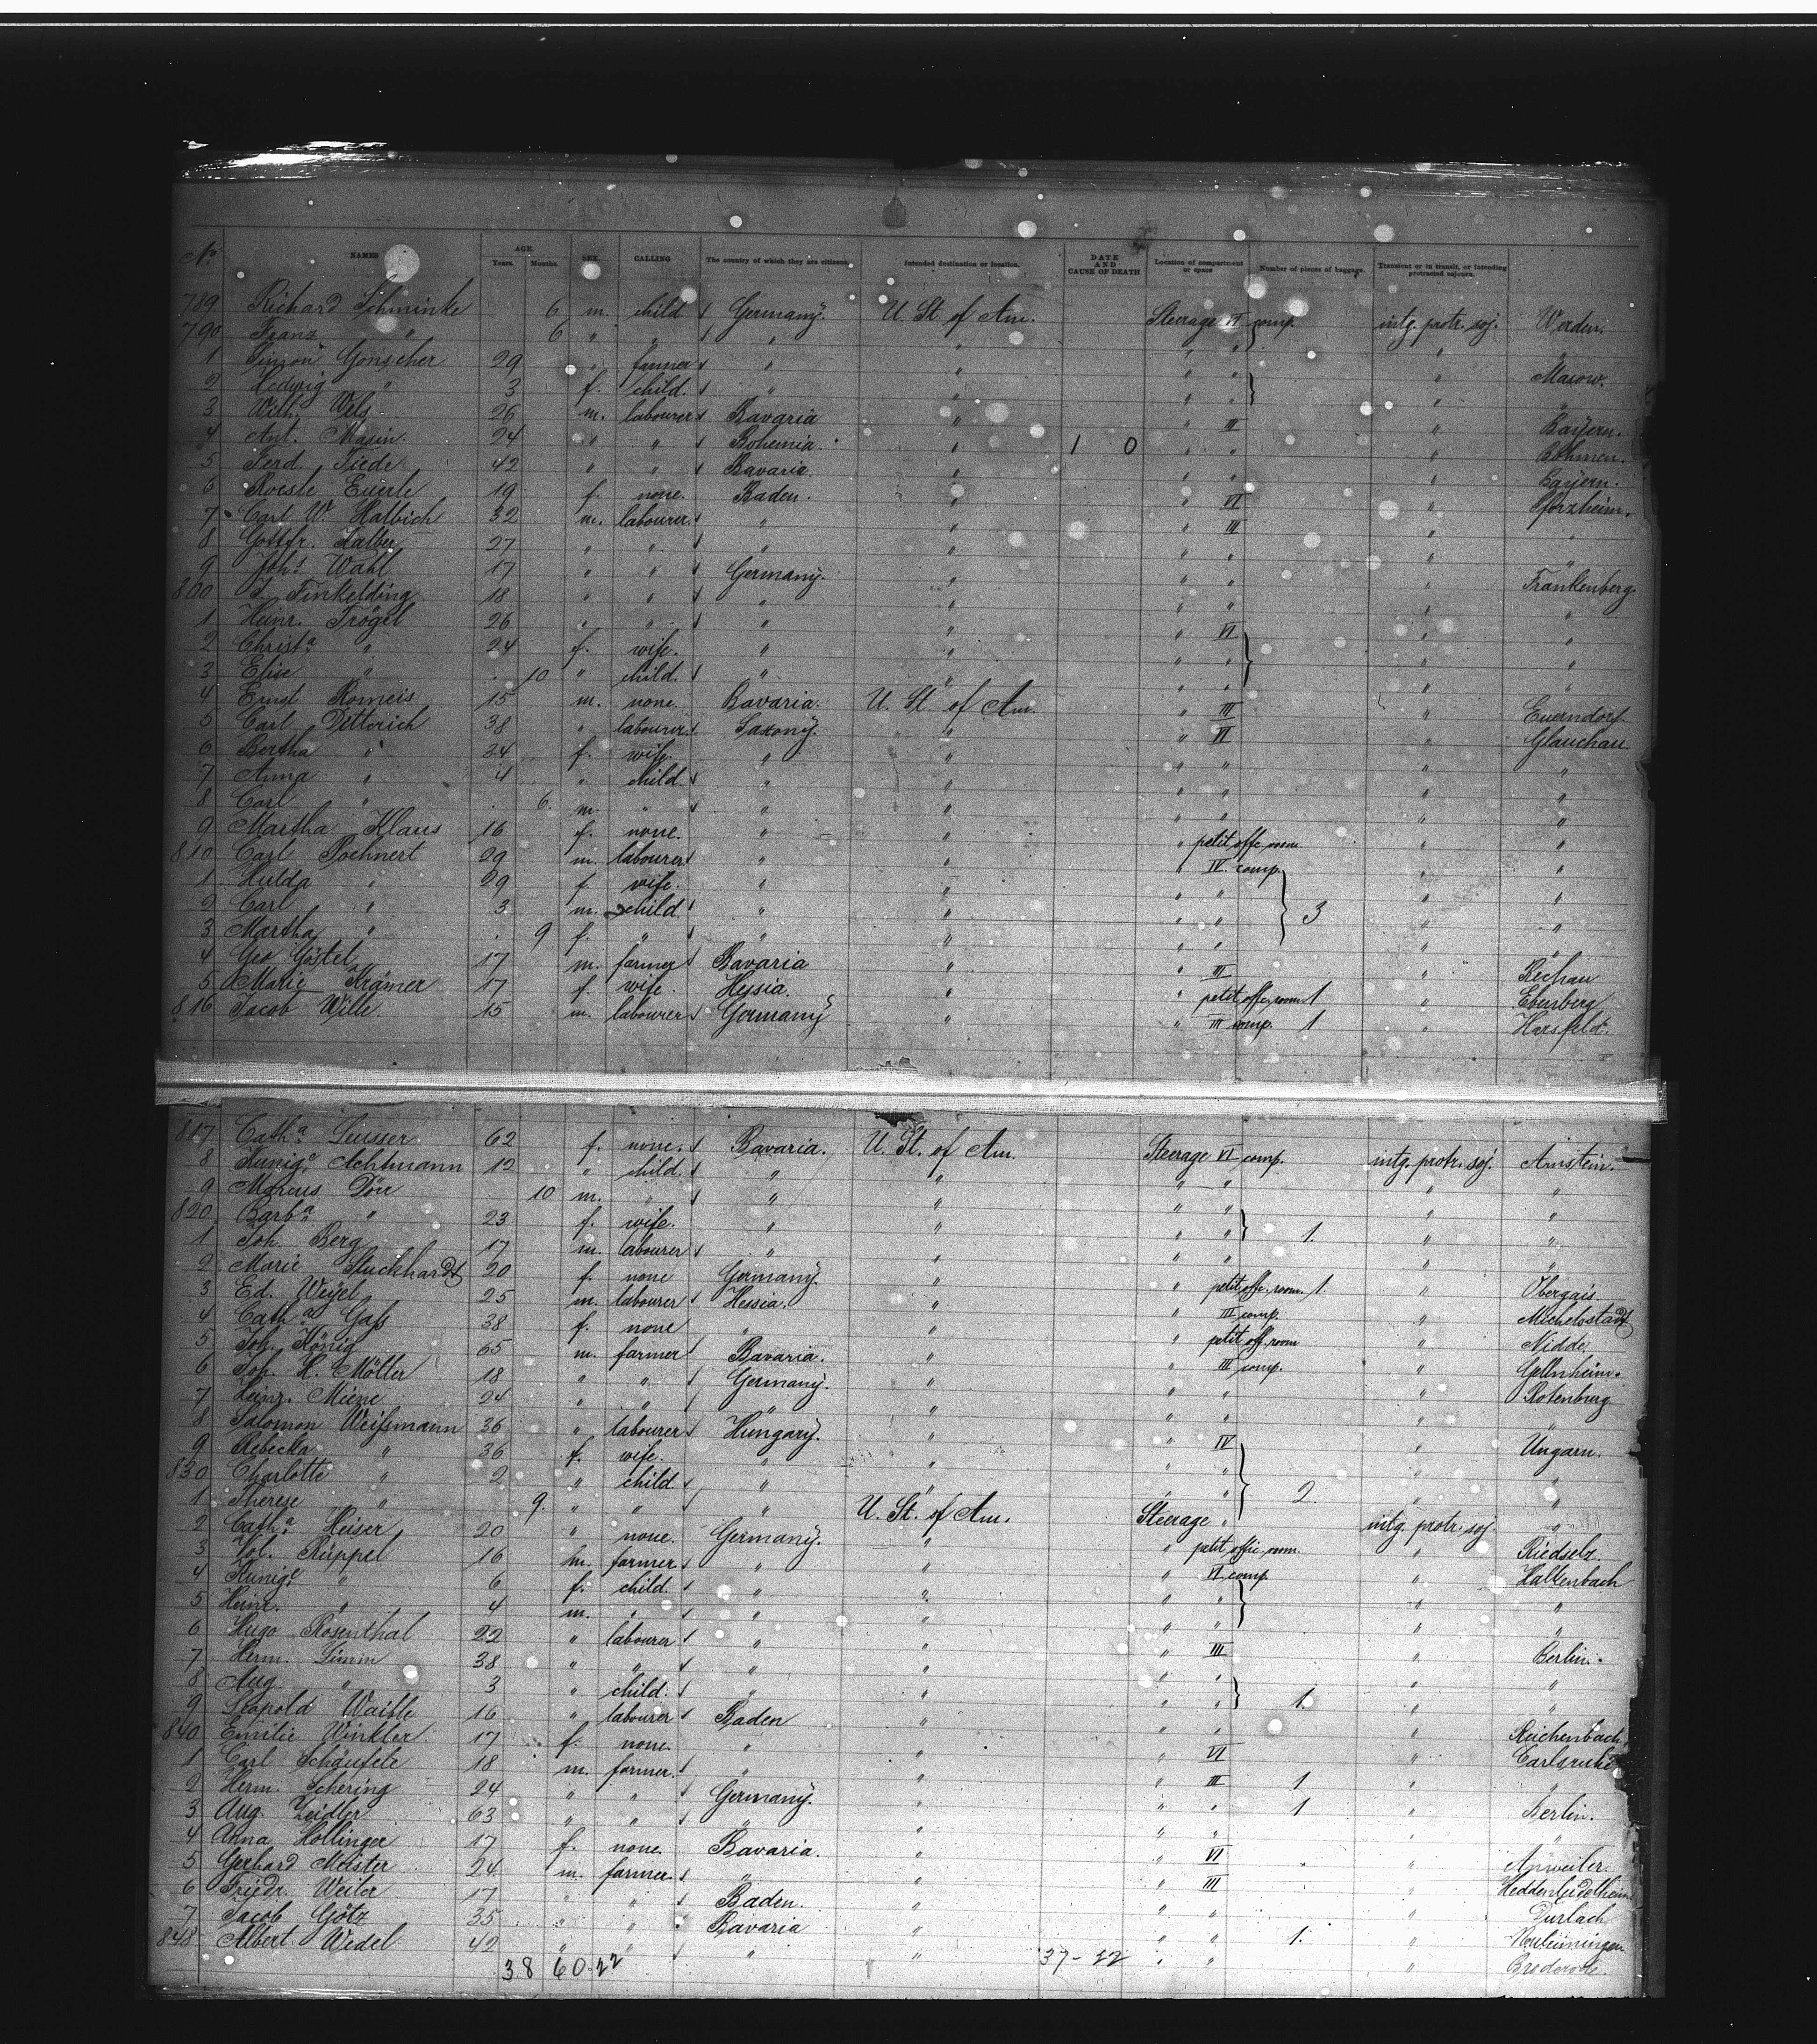 No. NAMES AGE. Years. Months. SEX. CALLING The country of which they are citizens. Intended destination or location. DATE AND CAUSE OF DEATH Location of compartment or space Number of pieces of baggage. Transient or in transit, or intending protracted sojourn.
789 Richard Schminke 6 m. child Germany. U. St. of Am. Steerage VI comp. intg. protr. soj. Werden.
790 Franz " 6 " " " " " " " "
1 Simon Gonscher 29 " farmer " " " " " Masow.
2 Hedwig " 3 f. child. " " " " " "
3 Wilh. Wels 26 m. labourer Bavaria " " III " Bayern.
4 Ant. Masin 24 " " Bohemia. " 1 0 " " " Böhmen.
5 Ferd. Tiede 42 " " Bavaria " " " " Bayern.
6 Roesle Euerle 19 f. none. Baden. " " VI " Pforzheim.
7 Carl W. Halbich 32 m. labourer " " " III " "
8 Gottfr. Halber 27 " " " " " " " "
9 Joh.s Wahl 17 " " Germany. " " " " Frankenberg.
800 J. Finkelding 18 " " " " " " " "
1 Heinr. Trögel 26 " " " " " VI " "
2 Christ.a " 24 f. wife. " " " " " "
3 Elise " . 10 " child. " " " " " "
4 Ernst Romeis 15 m. none Bavaria. U. St. of Am. " III " Euerndorf.
5 Carl Dittorich 38 " labourer Saxony. " " VI " Glauchau
6 Bertha " 34 f. wife. " " " " " "
7 Anna " 4 " child " " " " " "
8 Carl " . 6. m. " " " " " " "
9 Martha Klaus 16 f. none. " " " petit offc. room " "
810 Carl Poehnert 29 m. labourer " " " IV. comp. " "
1 Hulda " 29 f. wife. " " " " " "
2 Carl " 3 m. child. " " " " 3 " "
3 Martha " . 9 f. " " " " " " "
4 Geo Göstel 17 m. farmer Bavaria " " III " Rechau
5 Marie Krämer 17 f. wife. Hessia. " " petit offc. room 1 " Ebersberg
816 Jacob Wille. 15 m. labourer Germany " " III comp. 1 " Harsfeld.
817 Cath.a Leusser 62 f. none. Bavaria. U. St. of Am. Steerage VI comp. intg. protr. soj. Arnstein.
8 Kunig.e Achtmann 12 " child. " " " " " "
9 Marcus Dörr 10 m. " " " " " " "
820 Barb.a " 23 f. wife. " " " " 1. " "
1 Joh. Berg 17 m. labourer " " " " " "
2 Marie Stuckhardt 20 f. none Germany. " " petit offc. room. 1. " Obergais.
3 Ed. Weyel 25 m. labourer Hessia. " " III comp. " Michelsstadt
4 Cath.a Gass 38 f. none " " " petit off. room " Nidde.
5 Joh. König 65 m. farmer Bavaria. " " III comp. " Gellnheim.
6 Joh. H. Möller 18 " " Germany. " " " " Rotenburg
7 Heinr. Miene 24 " " " " " " " "
8 Salomon Weissmann 36 " labourer Hungary. " " IV " Ungarn.
9 Rebecka " 36 f. wife. " " " " " "
830 Charlotte " 2 " child " " " " 2. " "
1 Therese " 9. " " " U. St. of Am. Steerage " intg. protr. soj. "
2 Cath.a Heiser 20 " none. Germany. " " petit offic. room. " Riedselz
3 Val. Rüppel 16 m. farmer " " " VI comp. " Halkenbach
4 Kunig.e " 6 f. child. " " " " " "
5 Heinr. " 4 m. " " " " " " "
6 Hugo Rosenthal 22 " labourer " " " III " Berlin.
7 Herm. Simm 38 " " " " " " " "
8 Aug. " 3 " child. " " " " 1. " "
9 Leopold Waible 16 " labourer Baden " " " " Reichenbach
840 Emilie Winkler 17 f. none " " " VI " Carlsruhe
1 Carl Schäufele 18 m. farmer. " " " III 1 " "
2 Herm. Schering 24 " " Germany. " " " 1 " Berlin.
3 Aug. Zeidler 63 " " " " " " " "
4 Anna Hollinger 17 f. none Bavaria. " " VI " Anweiler.
5 Gerhard Meister 24 m. farmer " " " III " Heddenleidelheim
6 Friedr. Weiler 17 " " Baden. " " " " Durlach
7 Jacob Götz 35 " " Bavaria " " " 1. " Neuleiningen
848 Albert Wedel 42 " " " " " " " Brederode.
38 60 22 37-22